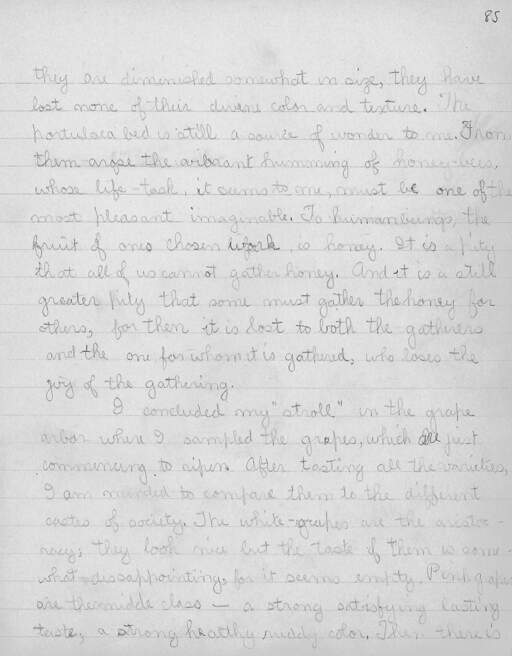 85
they are diminished somewhat in size, they have
lost none of their divine color and texture. The
portulaca bed is still a source of wonder to me. From
them arose the vibrant humming of honey-bees,
whose life-task, it seems to me, must be one of the
most pleasant imaginable. To human beings, the
fruit of ones chosen work is honey. It is a pity
that all of us cannot gather honey. And it is a still
greater pity that some must gather the honey for
others, for then it is lost to both the gatherers
and the one for whom it is gathered, who loses the
joy of the gathering.
I concluded my "stroll" in the grape
arbor where I sampled the grapes, which are just
commencing to ripen. After tasting all the varieties,
I am minded to compare them to the different
castes of society. The white-grapes are the aristoc-
racy; they look nice but the taste of them is some-
what dissappointing, for it seems empty. Pink grapes
are the midde class — a strong satisfying lasting
taste, a strong healthy ruddy color. Then there is